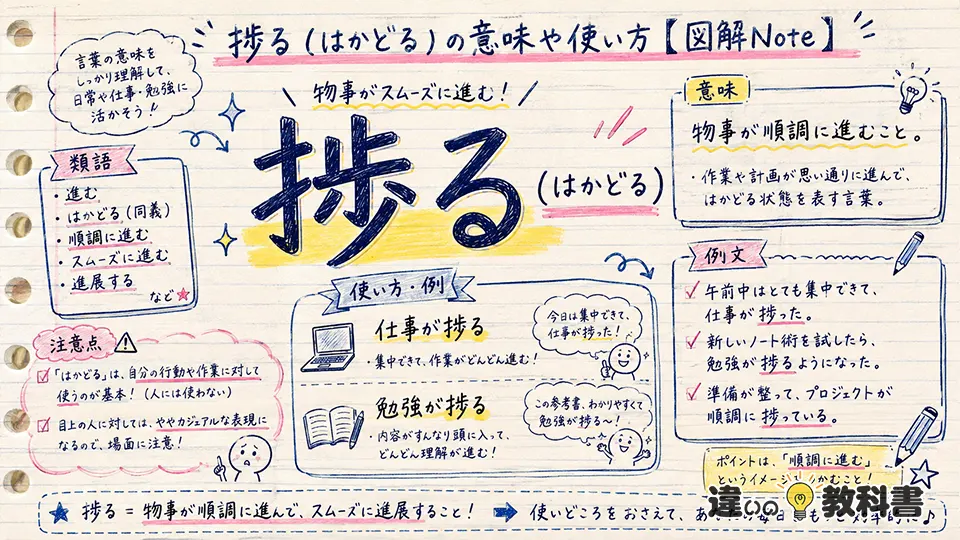 捗る(はかどる)の意味や使い方【図解Note】
言葉の意味を
しっかり理解して、
日常や仕事・勉強に
活かそう!
物事がスムーズに進む!
捗る
(はかどる)
意味
物事が順調に進むこと。
・作業や計画が思い通りに進んで、
はかどる状態を表す言葉。
類語
・進む
・はかどる(同義)
・順調に進む
・スムーズに進む
・進展する
など
使い方・例
仕事が捗る
・集中できて、作業がどんどん進む!
今日は集中できて、
仕事が捗った!
勉強が捗る
・内容がすんなり頭に入って、
どんどん理解が進む!
この参考書、わかりやすくて
勉強が捗る〜!
例文
午前中はとても集中できて、
仕事が捗った。
新しいノート術を試したら、
勉強が捗るようになった。
準備が整って、プロジェクトが
順調に捗っている。
注意点
「はかどる」は、自分の行動や作業に対して
使うのが基本!(人には使わない)
目上の人に対しては、ややカジュアルな表現に
なるので、場面に注意!
ポイントは、「順調に進む」
というイメージ かむこと!
★ 捗る = 物事が順調に進んで、スムーズに進展すること! ➡ 使いどころをおさえて、
違いの教科書